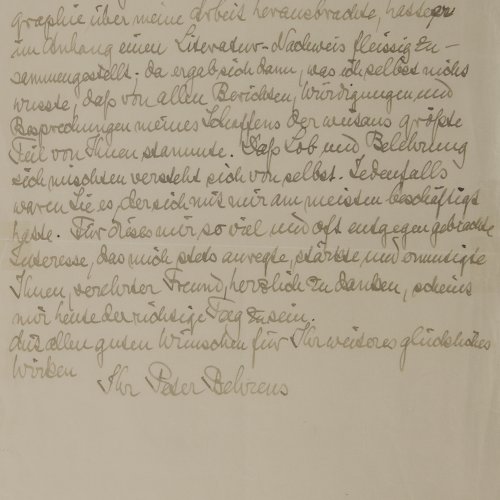 graphie über meine Arbeit herausbrachte, hatte er
im Anhang einen Literatur-Nachweis fleissig zu-
sammengestellt. Da ergab sich dann, was ich selbst nicht
wusste, daß von allen Berichten, Würdigungen und
Besprechungen meines Schaffens der weitaus größte
Teil von Ihnen stammte. Daß Lob und Belehrung
sich mischten versteht sich von selbst. Jedenfalls
waren Sie es, der sich mit mir am meisten beschäftigt
hatte. Für dieses mir so viel und oft entgegengebrachte
Interesse, das mich stets anregte, stärkte und ermutigte
Ihnen, verehrter Freund, herzlich zu danken, scheint
mir heute der richtige Tag zu sein.
Mit allen guten Wünschen für Ihr weiteres glückliches
Wirken
Ihr Peter Behrens